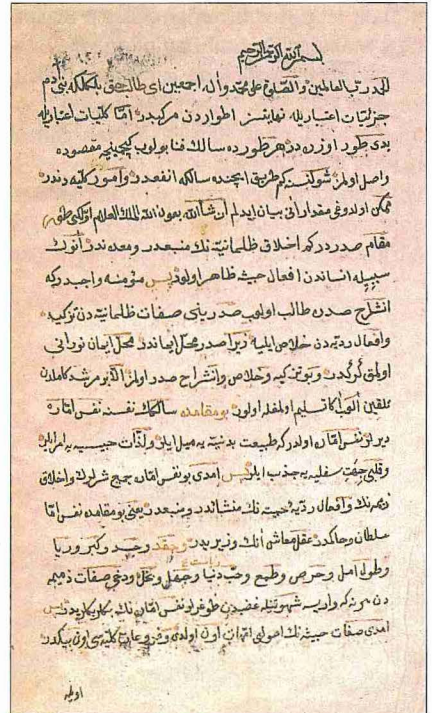 بسم الله الرحمن الرحيم
الحمد لله رب العالمين والصلوة على محمد وآله اجمعين اى طالب حق بلكلكه بنى آدم
جزئيات اعتباريله نهايتسز اطواردن مركبدر اما كليات اعتباريله
يدى طور اوزره در هر طورده سالك فنا بولوب كچمينچه مقصوده
واصل اولمز شول نسنه كم طريق ايچنده سالكه انفعدر وامور كليه دندر
ممكن اولدوغى مقدارانى بيان ايدلم ان شاء الله بعون الله الملك العلام اولكى طور
مقام صدردركه اخلاق ظلمانيه نك منبعدر ومعدنيدر آنوك
سببيله انساندن افعال خبيثه ظاهر اولور پس مؤمنه واجبدركه
انشراح صدره طالب اولوب صدرينى صفات ظلمانيه دن تزكيه
وافعال رديه دن خلاص ايليه زيرا صدر محل ايماندر محل ايمان نورانى
اولمق كركدر وبو تزكيه وخلاص وانشراح صدر اولمز الا بر مرشد كاملدن
تلقين آلوب اكا تسليم اولمغله اولور بو مقامده سالكك نفسنه نفس اماره
ديرلر نفس اماره اولدركه طبيعت بدنيه يه ميل ايلر ولذات حسيه يه امر ايلر
وقلبى جهت سفليه يه جذب ايلر پس امدى بو نفس اماره جميع شرلرك واخلاق
ذميمه نك وافعال رديه نك منشائدر ومنبعدر يعنى بو مقامده نفس اماره
سلطان وحاكمدر عقل معاش انك وزيريدر وحقد وحسد وكبر وريا
وطول امل وحرص وطمع وحب دنيا وجهل وبخل ودخى صفات ذميمه
دن هر نه كه وارايسه شهوتيله غضبدن طوغر لر نفس اماره نك
امدى صفات خبيثه نك اصولى اون اولدى وفروعات كليه سى اون بيكدر
اويله